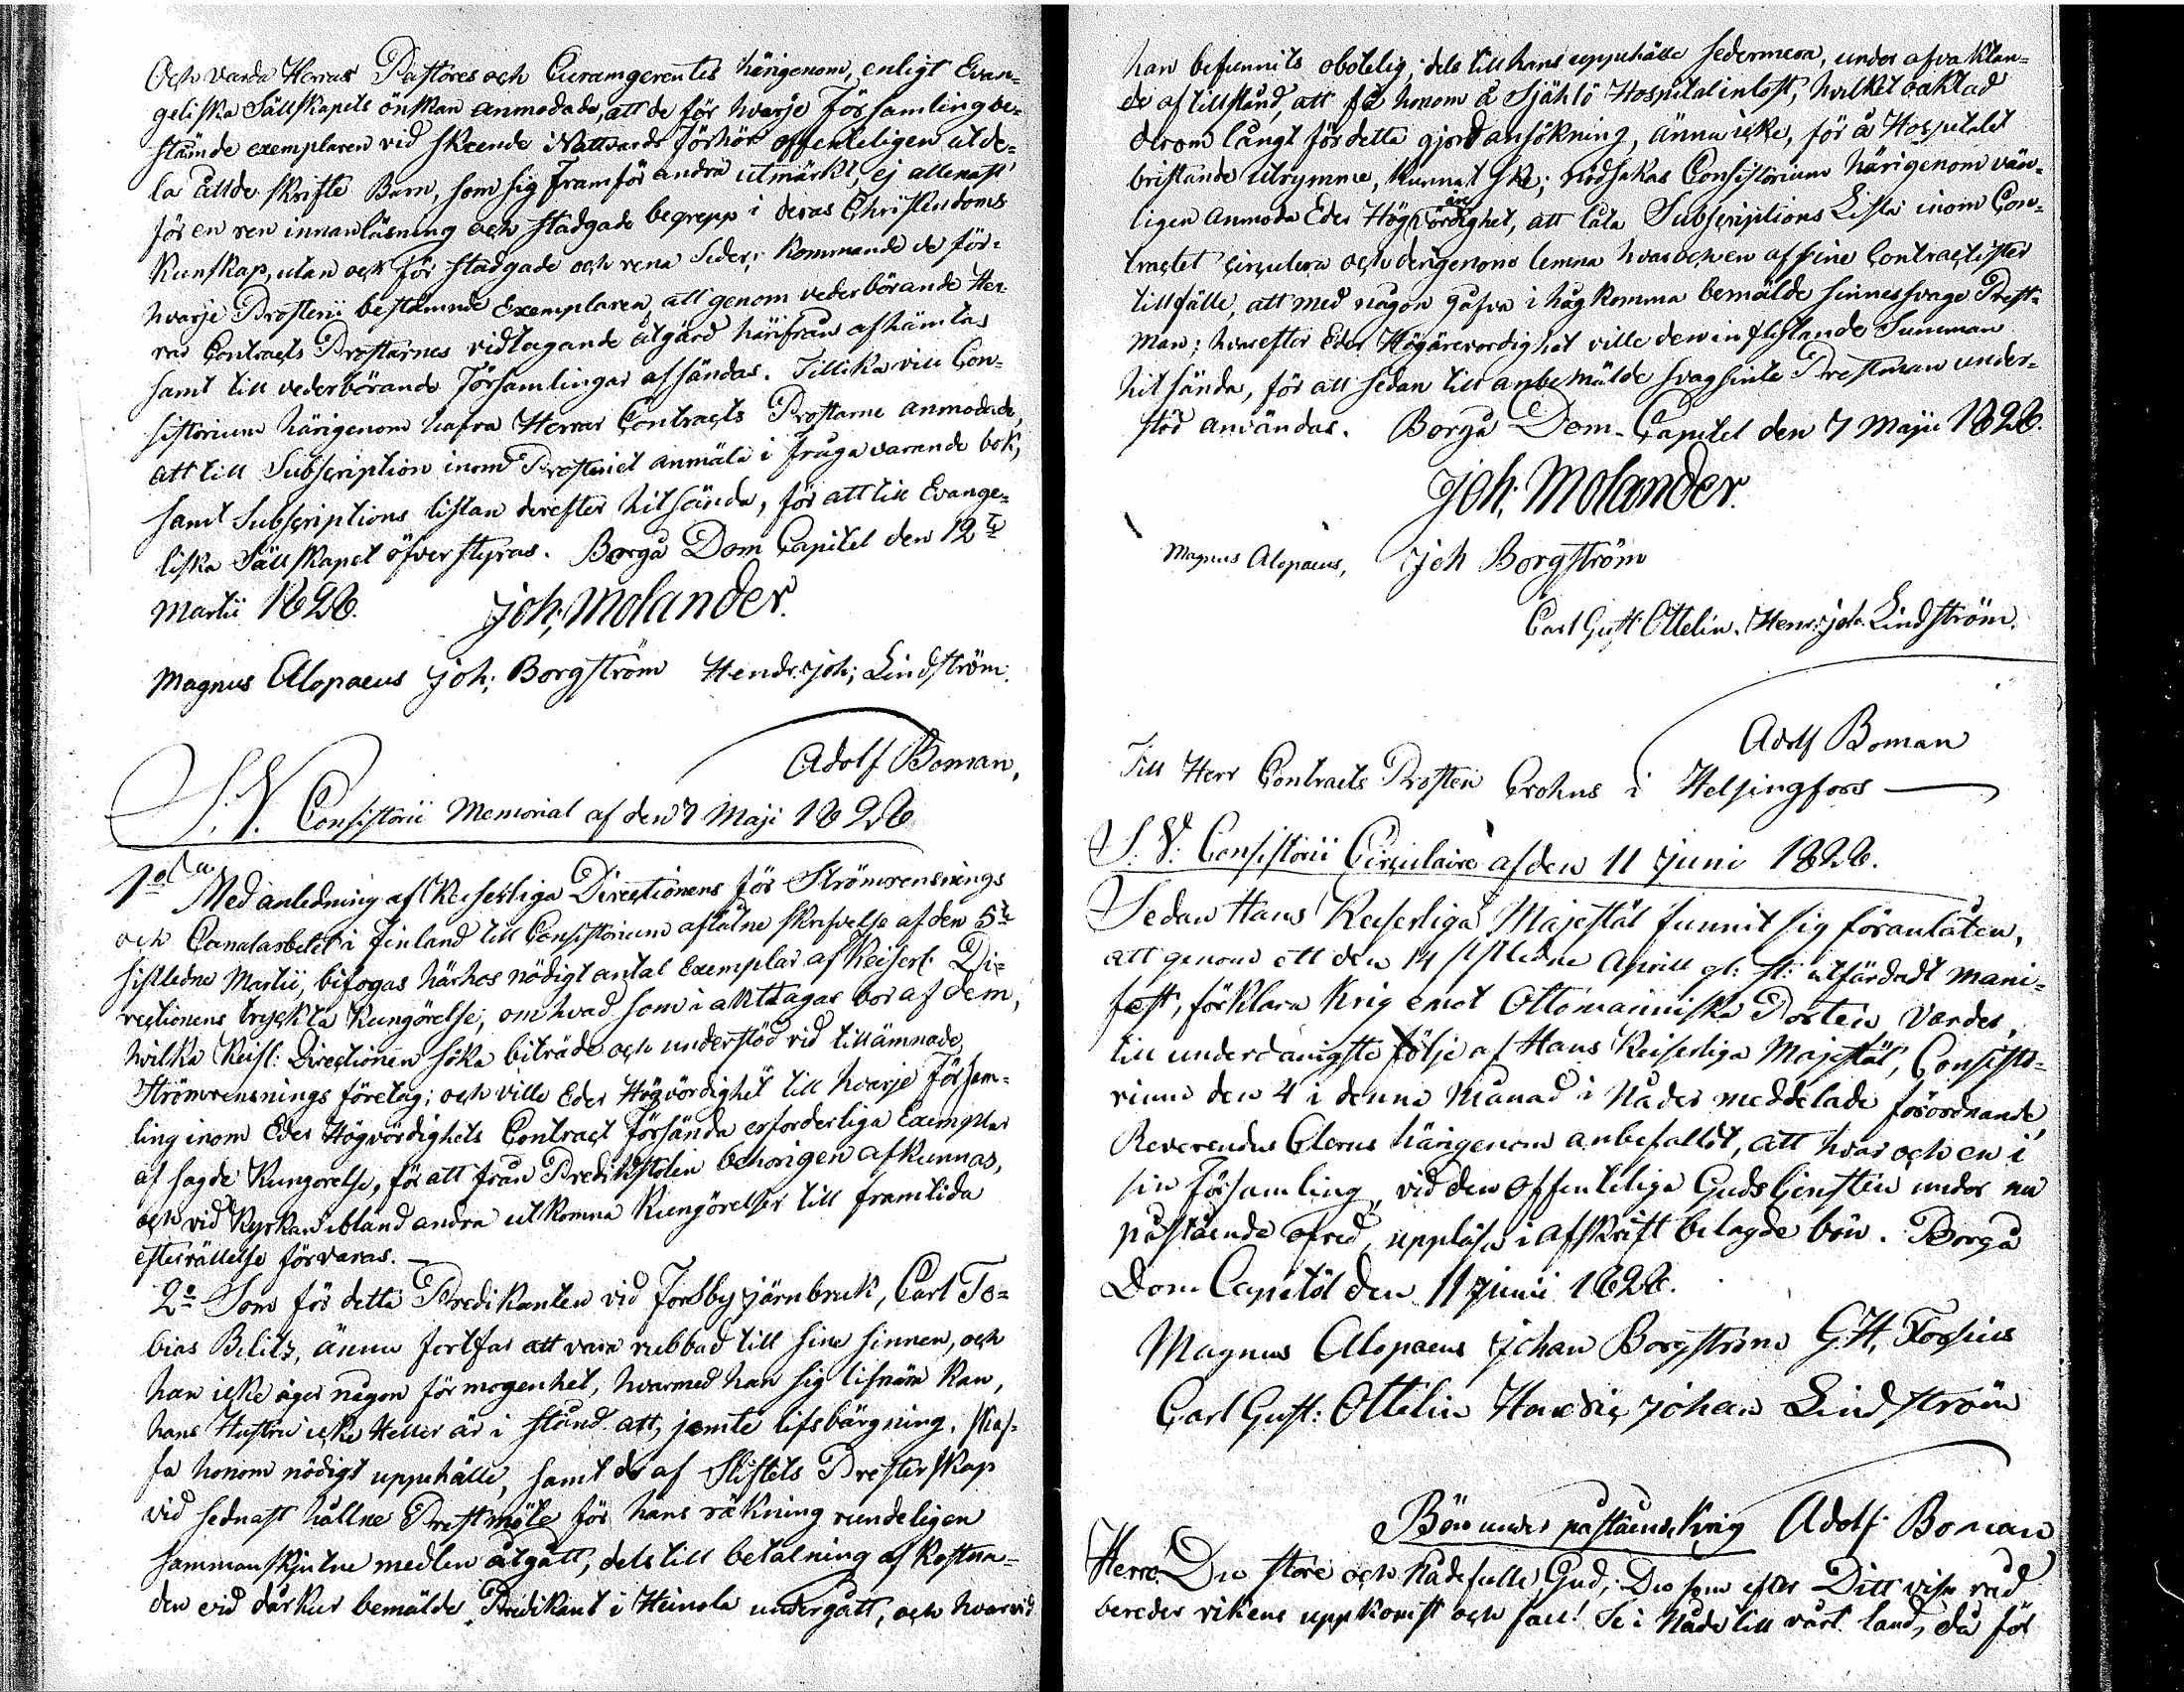 Och varda Herrar Pastores och Curamgerentes härigenom, enligt Evan=
geliska Sällskapets önskan anmodade, att de för hvarje Församling be=
stämde exemplaren vid skeende Nattvards förhör offenteligen utde=
la åt de skrifte Barn, som sig framför andra utmärkt, ej allenast
för en ren innanläsning och stadgade begrepp i deras Christendoms
kunskap, utan och för stadgade och rena seder; kommande de för=
hvarje Prosteri bestämnde Exemplaren, att genom vederbörande Her=
rar Contracts Prostarnes vidtagande åtgärd härifrån afhämtas
samt till vederbörande Församlingar afsändas. Tillika vill Con=
sistorium härigenom hafva Herrar Contracts Prostarne anmodade,
att till Subscription inom Prosteriet anmäla i fråga varande bok,
samt Subscriptions listan derefter hitsända, för att till Evange=
liska Sällskapet öfverstyras. Borgå Dom Capitel den 12te
Martii 1828. Joh; Molander.
Magnus Alopaeus Joh; Borgström Hendr: Joh; Lindström.
Adolf Boman,
S. V. Consistorii Memorial af den 7 Maji 1828
1o Med anledning af Keiserliga Directionens för Strömrensnings
och Canalarbetet i Finland till Consistorium aflåtne skrifvelse af den 5te
sistledne Martii, bifogas härhos nödigt antal Exemplar af Keiserl. Di=
rectionens tryckta Kungörelse, om hvad som i akttagas bör af dem,
hvilka Keisl: Directionen söka biträde och understöd vid tillämnade
Strömrensnings företag; och ville Eder Högvördighet till hvarje Försam=
ling inom Eder Högvördighets Contract försända erforderliga Exemplar
af sagde Kungörelse, för att från Predikstolen behörigen afkunnas,
och vid Kyrkan ibland andra utkomna Kungörelser till framtida
efterrättelse förvaras. —
2o Som för detta Predikanten vid Forsby järnbruk, Carl To=
bias Belitz, ännu fortfar att vara rubbad till sina sinnen, och
han icke äger någon förmögenhet, hvarmed han sig lifnära kan,
hans Hustru icke heller är i stånd att, jemte lifsbärgning, skaf=
fa honom nödigt uppehälle, samt de af Stiftets Presterskap
vid sednast hållne Prestmöte för hans räkning rundeligen
sammanskjutne medlen åtgått, dels till betalning af kostna=
den vid dårkur bemälde Predikant i Heinola undergått, och hvarvid
han befunnits obotelig; dels till hans uppehälle sedermera, under afvaktan=
de af tillstånd, att få honom å Själö Hospital inlöst, hvilket oaktad
derom långt för detta gjord ansökning, ännu icke, för å Hospitalet
bristande utrymme, kunnat ske; nödsakas Consistorium härigenom vän=
ligen anmoda Eder Högärevördighet, att låta Subscriptions Lista inom Con=
tractet circulera och derigenom lemna hvar och en af sine Contractister
tillfälle, att med någon gåfva i hågkomma bemälde sinnessvage Prest=
man; hvarefter Eder Högärevördighet ville den inflytande Summan
hitsända, för att sedan till anbemälde svagsinte Prestman under=
stöd användas. Borgå Dom-Capitel den 7 Maji 1828.
Joh; Molander.
Magnus Alopaeus, Joh Borgström
Carl Gust: Ottelin. Henr: Joh. Lindström.
Adolf Boman
Till Herr Contracts Prosten Crohns i Helsingfors —
S. V. Consistorii Circulaire af den 11 Juni 1828.
Sedan Hans Keiserliga Majestät funnit sig föranlåten,
att genom ett den 14 sistledne Aprill gl: st: utfärdadt mani=
fest, förklara krig emot Ottomanniska Porten, varder,
till underdånigste följe af Hans Keiserliga Majestäts, Consisto=
rium den 4 i denna Månad i Nåder meddelade förordnande,
Reverendus Clerus härigenom anbefalldt, att hvar och en i
sin Församling, vid den offenteliga Gudstjensten under nu
påstående ofred, uppläsa i afskrift bilagde bön. Borgå
Dom Capitel den 11 Junii 1828.
Magnus Alopaeus Johan Borgström G. H. Forsius
Carl Gust: Ottelin Hendric Johan Lindström
Adolf Boman
Bön under påstående Krig
Herre! Du store och nådefulle Gud; Du som efter Ditt visa råd
bereder rikens uppkomst och fall! Se i Nåde till vårt land, då för